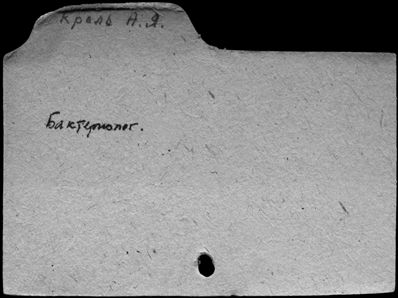 Кроль А.Я.
Бактериолог.